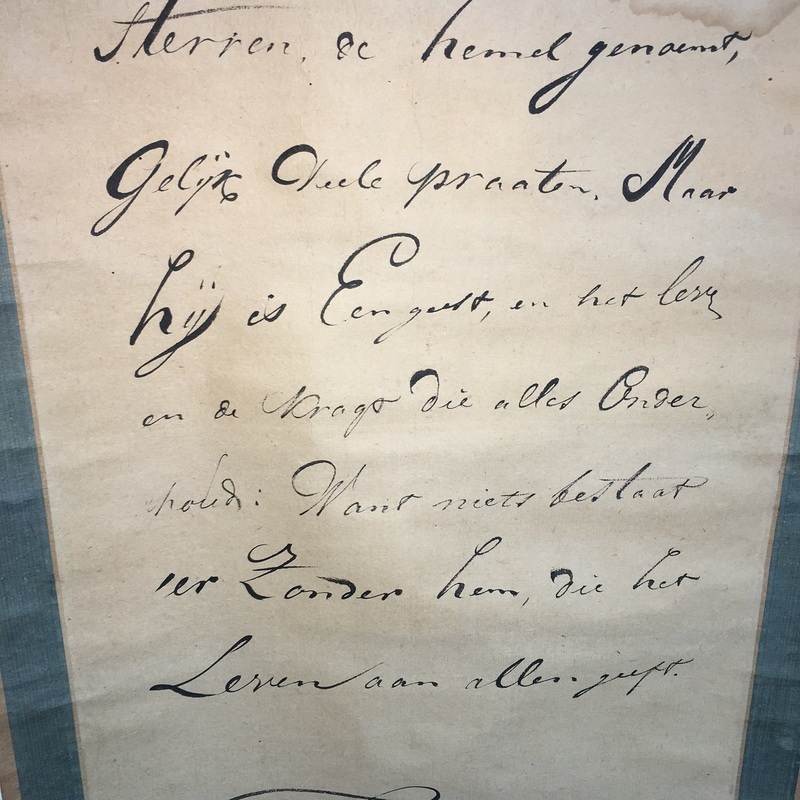 Sterren, de hemel genoemt,
Gelijk Veele praaten, Maar
hij is Een geest, en het leven
en de kragt die alles Onder,
houd: Want niets bestaat
'er Zonder hem, die het
Leven aan allen geeft.